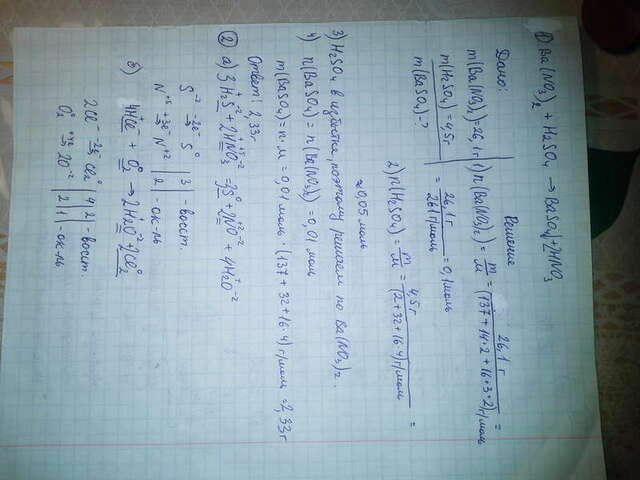 ① Ba(NO₃)₂ + H₂SO₄ → BaSO₄↓+2HNO₃
Дано:
Решение
m(Ba(NO₃)₂)=26,1г
m(H₂SO₄)=4,5г
m(BaSO₄)-?
1) n(Ba(NO₃)₂) = m/M = 26,1 г/(137+14·2+16·3·2)г/моль =
= 26,1г/261г/моль = 0,1моль
2) n(H₂SO₄) = m/M = 4,5г/(2+32+16·4)г/моль =
≈0,05моль
3) H₂SO₄ в избытке, поэтому решаем по Ba(NO₃)₂.
4) n(BaSO₄) = n(Ba(NO₃)₂) = 0,01 моль
m(BaSO₄) = n·M = 0,01 моль · (137+32+16·4)г/моль =2,33г
Ответ: 2,33г
② а) 3H₂S + 2HNO₃ = 3S⁰ + 2NO + 4H₂O⁻²
S⁻² -2e⁻→ S⁰ | 3 | - восст.
N⁺⁵ +3e⁻→ N⁺² | 2 | - ок-ль
б) 4HCl + O₂⁰ → 2H₂O⁻² + 2Cl₂⁰
2Cl⁻ -2e⁻→ Cl₂⁰ | 4 | 2 | - восст.
O₂⁰ +4e→ 2O⁻² | 2 | 1 | - ок-ль